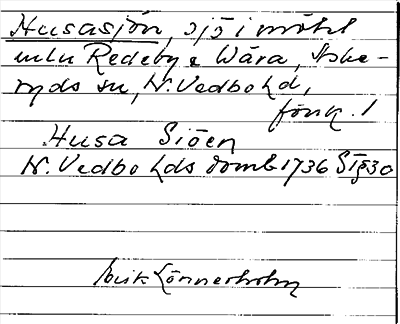 Husasjön, sjö i möhl
mln Redeby & Wära, Aske-
ryds sn, N. Vedbo hd,
fönk. 1
Husa Siöen
N. Vedbo hds domb 1736 § 30
Erik Lönnerholm